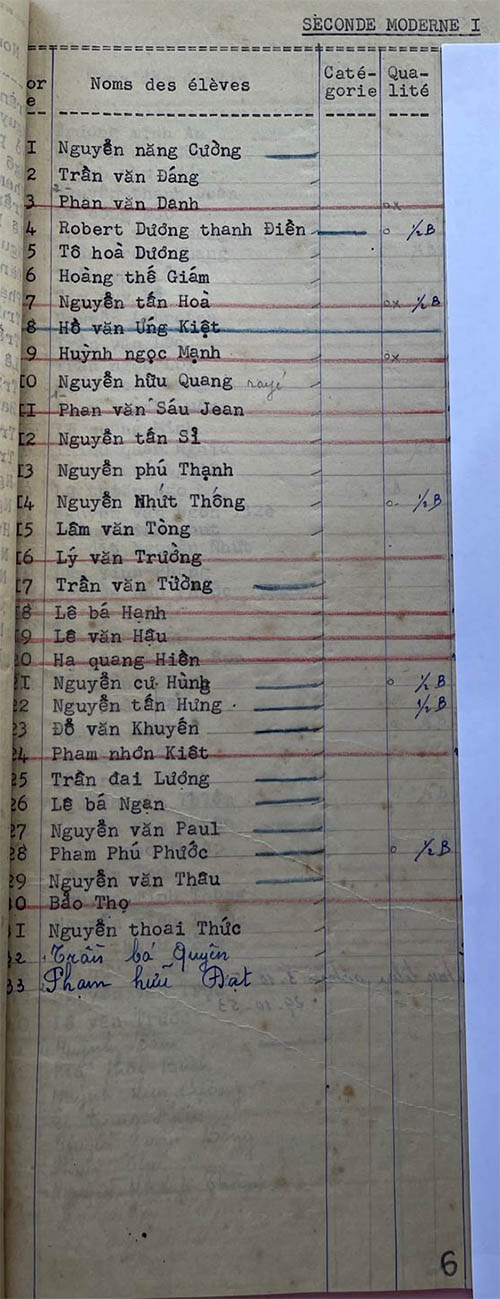 SÈCONDE MODERNE I
or Noms des élèves Caté- Qua-
e gorie lité
I Nguyễn năng Cường
2 Trần văn Đáng
3 Phan văn Danh ox
4 Robert Dương thanh Điền o ½B
5 Tô hoà Dương
6 Hoàng thế Giám
7 Nguyễn tấn Hoà ox ½B
8 Hồ văn Ưng Kiệt
9 Huỳnh ngọc Mạnh ox
I0 Nguyễn hữu Quang rayé
II Phan văn Sáu Jean
I2 Nguyễn tấn Sĩ
I3 Nguyễn phú Thạnh
I4 Nguyễn Nhứt Thống o ½B
I5 Lâm văn Tòng
I6 Lý văn Trường
I7 Trần văn Tường
I8 Lê bá Hạnh
I9 Lê văn Hậu
20 Hạ quang Hiền
2I Nguyễn cư Hùng o ½B
22 Nguyễn tấn Hưng ½B
23 Đỗ văn Khuyến
24 Phạm nhơn Kiêt
25 Trần đai Lượng
26 Lê bá Ngạn
27 Nguyễn văn Paul
28 Pham Phú Phước o ½B
29 Nguyễn văn Thâu
30 Bảo Thọ
3I Nguyễn thoai Thức
32 Trần bá Quyên
33 Phạm hữu Đạt
29-10-53
6